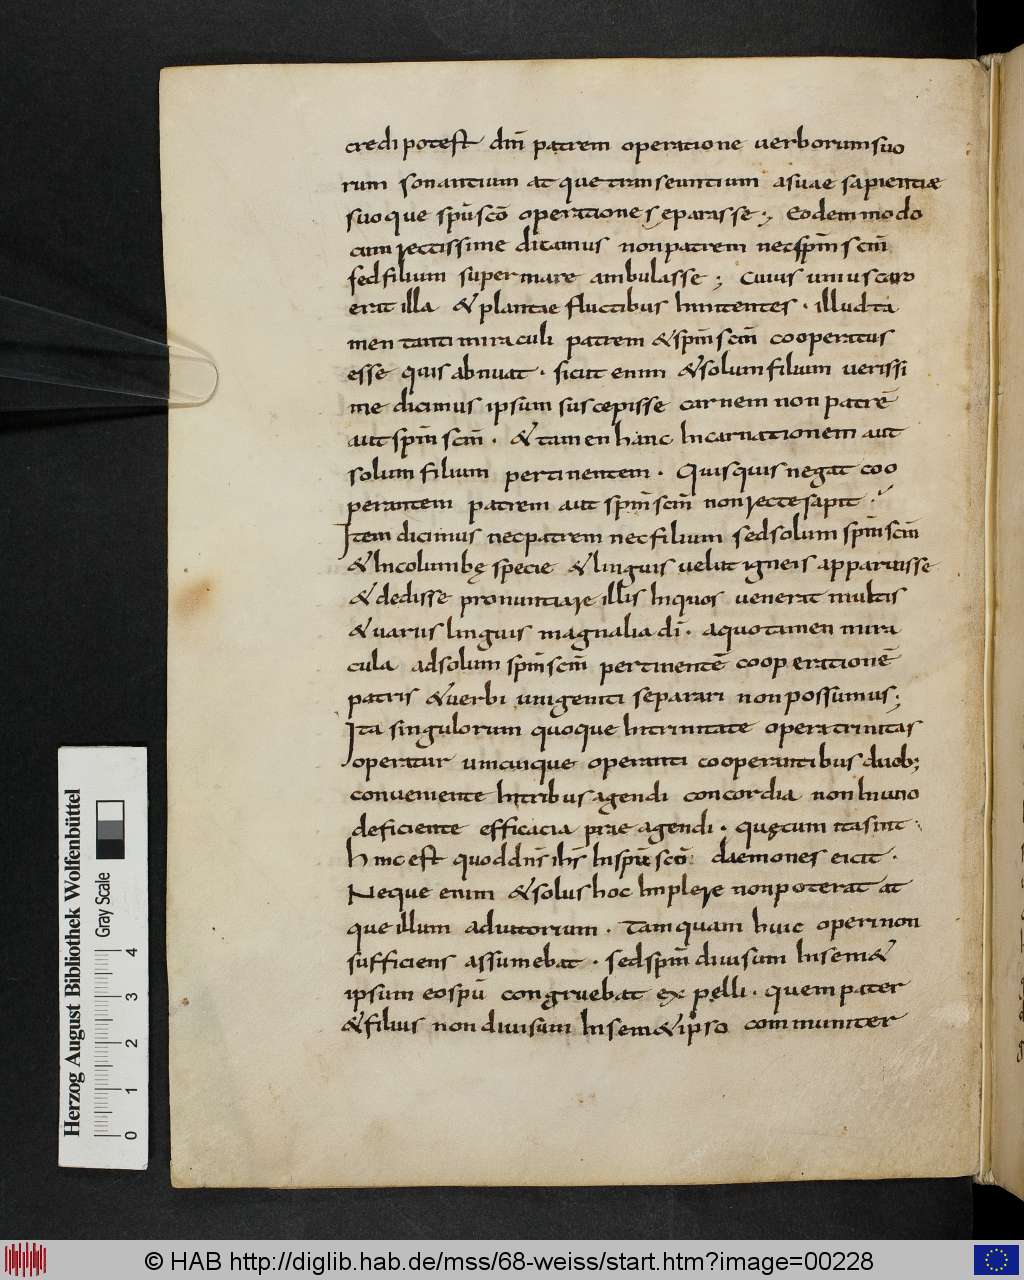 credi potest dm̄ patrem operatione uerborum suo
rum sonantium atque transeuntium a suae sapientiæ
suoque spū scō operatione separasse ; Eodem modo
cum rectissime dicamus non patrem nec spm̄ scm̄
sed filium super mare ambulasse ; Cuius unius caro
erat illa & plantae fluctibus innitentes · illud ta
men tanti miraculi patrem & spm̄ scm̄ cooperatus
esse quis abnuat · sicut enim & solum filium uerissi
me dicimus ipsum suscepisse carnem non patrē
aut spm̄ scm̄ · & tamen hanc Incarnationem aut
solum filium pertinentem · Quisquis negat coo
perantem patrem aut spm̄ scm̄ non recte sapit ·
Item dicimus nec patrem nec filium sed solum spm̄ scm̄
& In columbę specie & linguis uelut igneis apparuisse
& dedisse pronuntiare illis In quos uenerat multis
& uariis linguis magnalia dī · a quo tamen mira
cula ad solum spm̄ scm̄ pertinentē cooperationē
patris & uerbi unigeniti separari non possumus ;
Ita singulorum quoque In trinitate opera trinitas
operatur unicuique operanti cooperantibus duob;
conueniente In tribus agendi concordia non In uno
deficiente efficacia prae agendi · quę cum ita sint ·
hinc est quod dn̄s ih̄s In spū scō daemones eicit ·
Neque enim & solus hoc Implere non poterat at
que illum adiutorium · Tamquam huic operi non
sufficiens assumebat · sed spm̄ diuisum In sem&
ipsum eo spū congruebat expelli · quem pater
& filius non diuisum In sem&ipso communiter
Herzog August Bibliothek Wolfenbüttel
Gray Scale
0 1 2 3 4
© HAB http://diglib.hab.de/mss/68-weiss/start.htm?image=00228